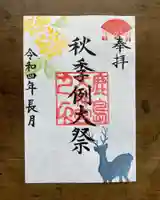 奉拝
秋季例大祭
鹿島
令和四年長月